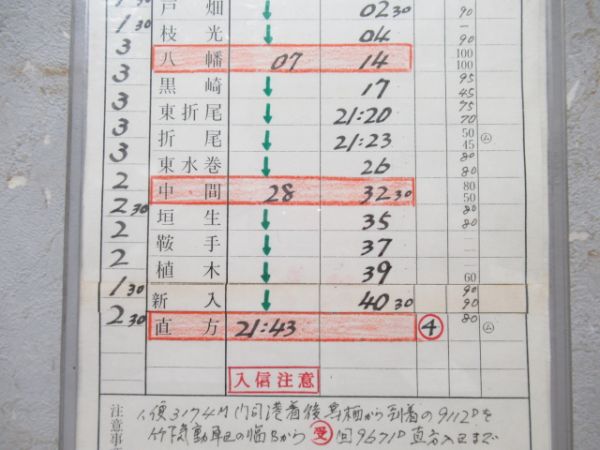 1 30 戸畑 ↓ 02 30 90
1 30 枝光 ↓ 04 — 90
3 八幡 07 14 100 100
3 黒崎 ↓ 17 95 45
3 東折尾 ↓ 21:20 75 70
3 折尾 ↓ 21:23 50 45 ㋰
3 東水巻 ↓ 26 80
2 中間 28 32 30 80 50
2 30 垣生 ↓ 35 80 80
2 鞍手 ↓ 37
2 植木 ↓ 39 60
1 30 新入 ↓ 40 30 90 90
2 30 直方 21:43 ④ 80 ㋰
入信注意
注意事
1、便3174M(門司港着後
から到着の9112Dを
から 受 回9671D直方入区まで